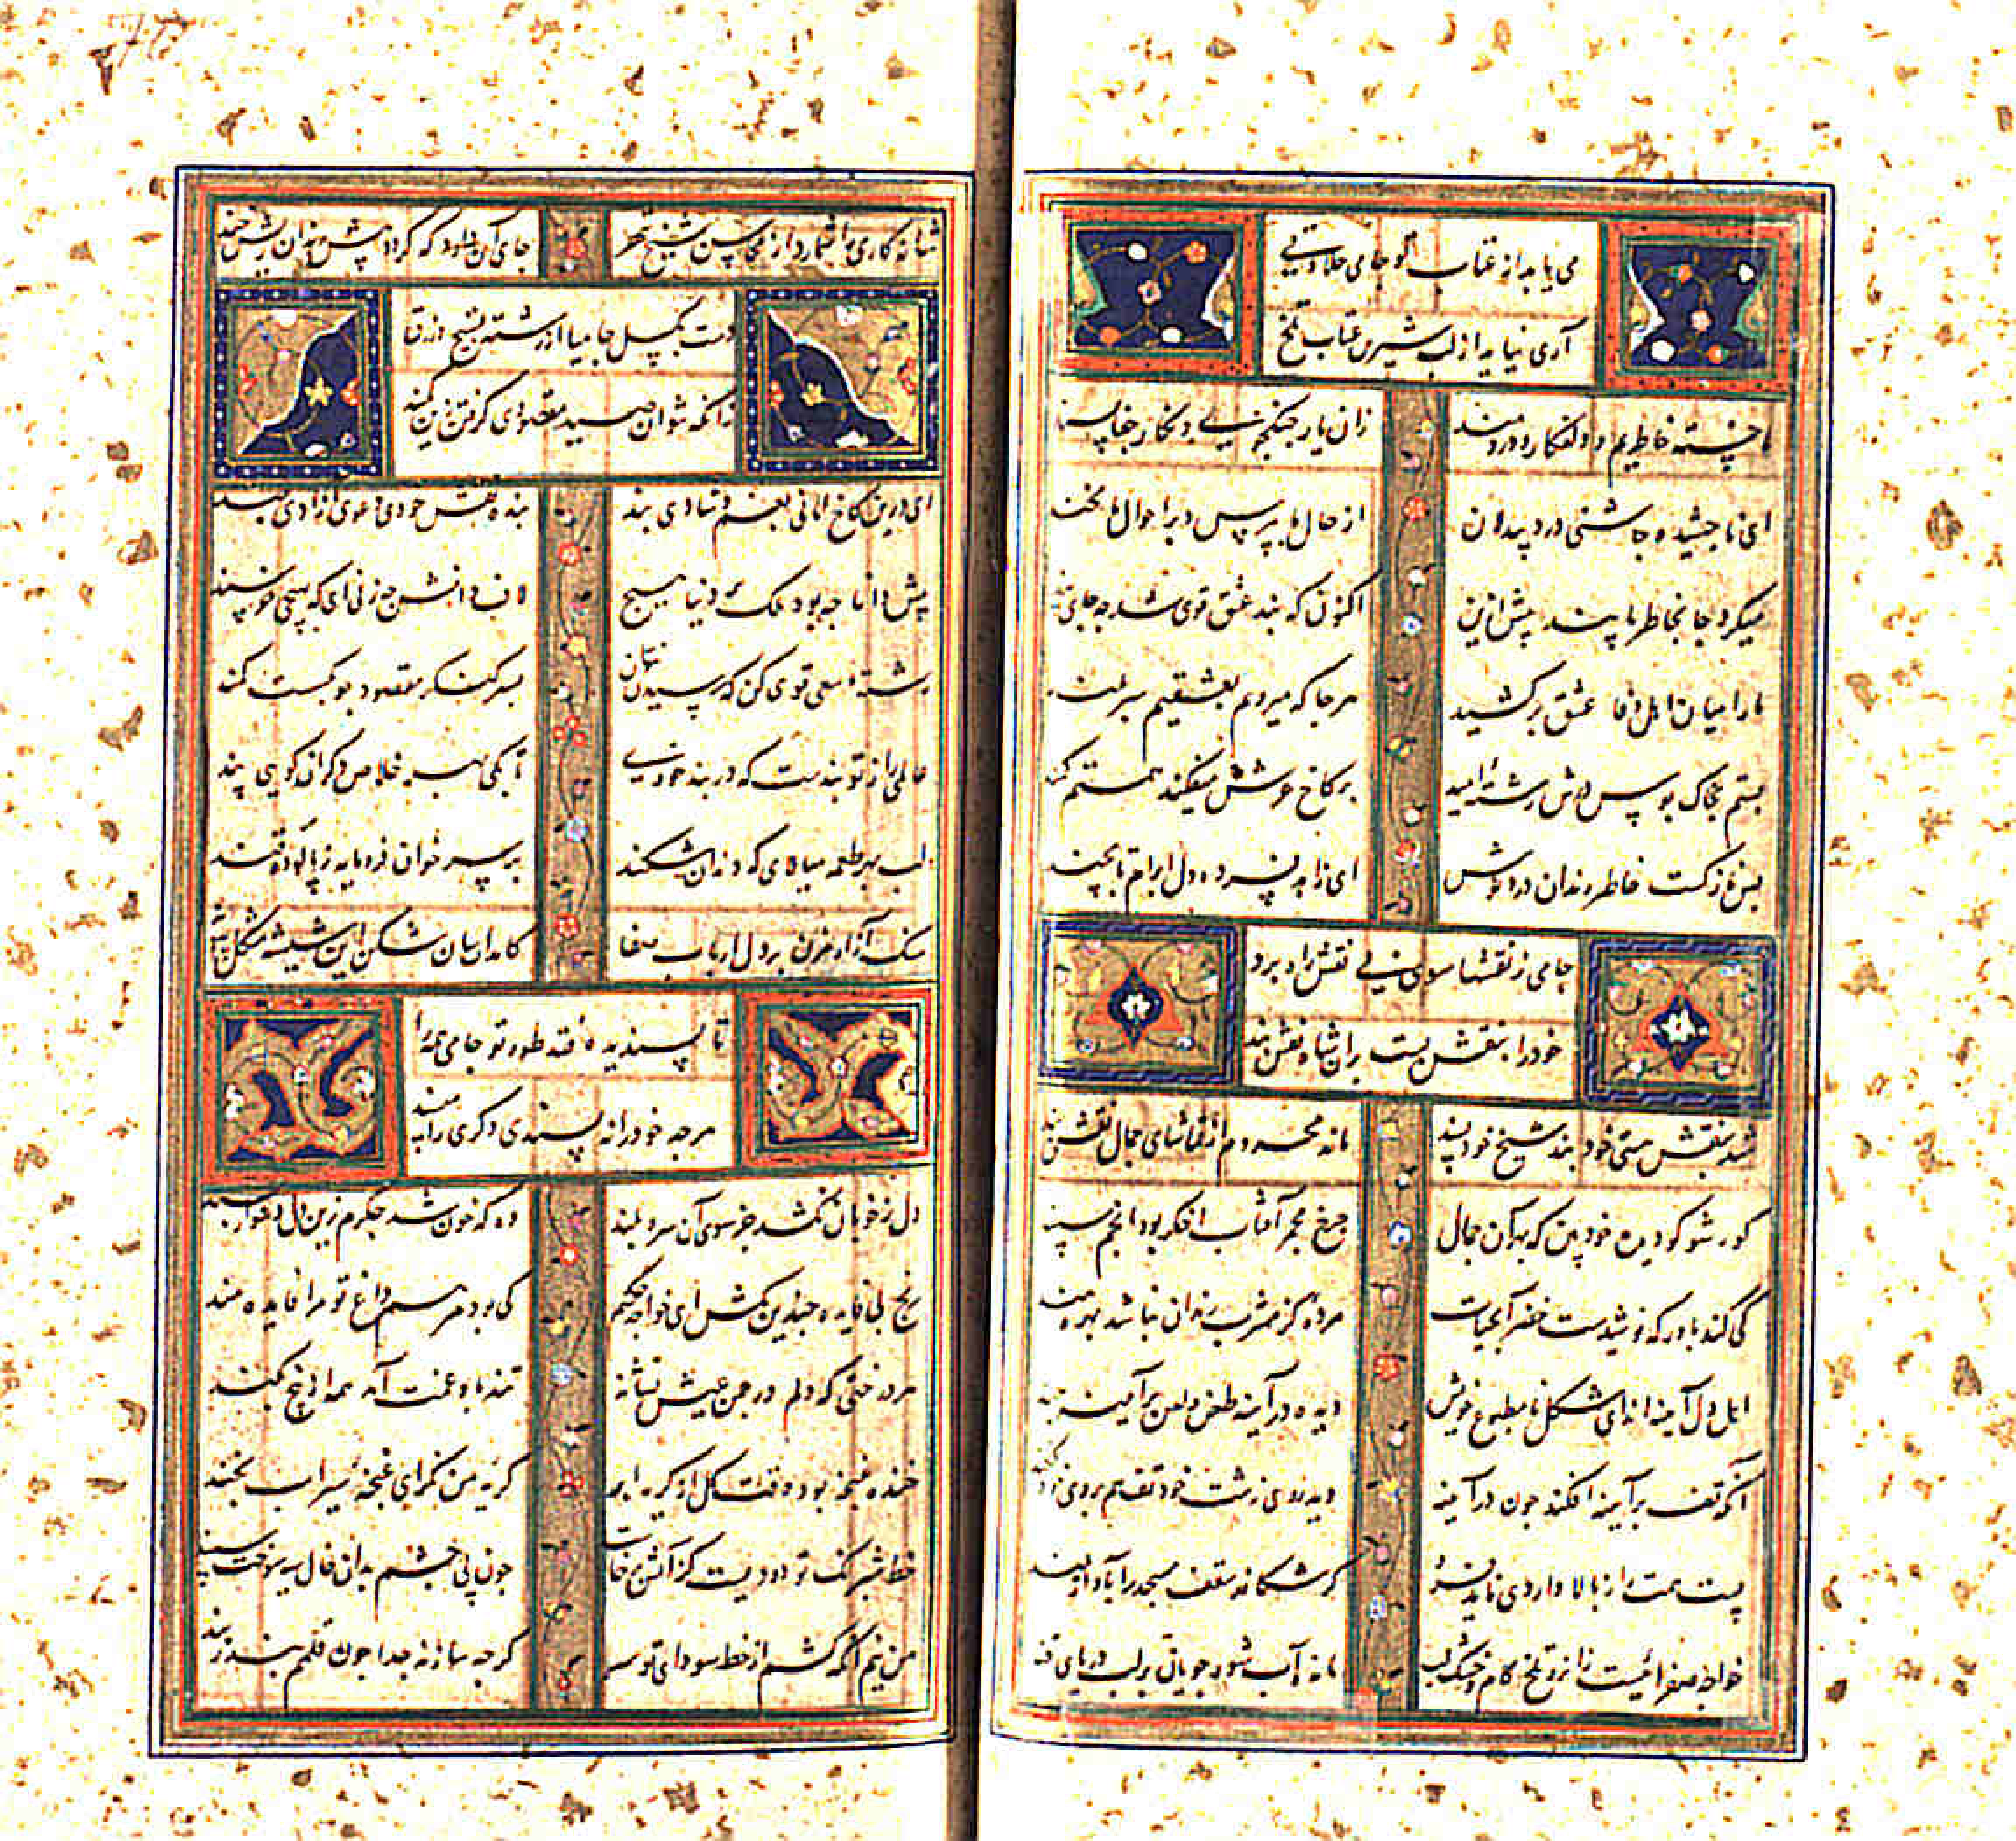 می یابد از عتاب تو جامی حلاوتی
آری نیاید از لب شیرین عتاب تلخ
ما خسته خاطریم و دلفکار و دردمند زان یار جنکجوی و نکار جفا پسند
ای ناچشیده چاشنی درد بیدلان از حال ما بپرس و بر احوال ما مخند
میکرد جا بخاطر ما پند پیش ازین اکنون که بند عشق قوی شد چه جای
ما را میان اهل وفا عشق برکشید هر جا که میرویم بعشقیم سربلند
بستم بخاک بوس درش رشته امید بر کاخ عرش میفکند همتم کمند
بس نازکست خاطر رندان دردنوش ای زاهد فسرده دل ابرام تا بچند
جامی ز نقشها سوی بی نقش راه برد
خود را بنقش بست بران شاه نقش بند
شد بنقش هستی خود بند شیخ خود پسند ماند محروم از تماشای جمال نقش بند
کور شو کو دیده خود بین که بهر آن جمال چرخ مجمر آفتاب اخکر بود انجم سپند
کی کند باور که نوشیدست خضر آب حیات مرده کز مشرب رندان نباشد بهره مند
اهل دل آیینه اند ای شکل نامطبوع خویش دیده در آینه طعن و لعن بر آیینه
آنکه تف بر آیینه افکند چون در آینه دید روی زشت خود تف هم بروی خود
پست همت را ز بالا واردی ناید فرو کر شکافد سقف مسجد را بآواز بلند
خواجه صفرائیست زانرو تلخ کام و خشک لب ماند آب شور جویان بر لب دریای قند
شانه کاری را شمارد از محاسن شیخ شهر جای آن دارد که کردد پیش رندان ریش خند
دست بکسل جامیا از رشته تسبیح زرق
زانکه نتوان صید مقصودی کرفتن زین کمند
ای درین کاخ امانی بغم و شادی بند بنده نفس خودی دعوی آزادی چند
پیش دانا چه بود ملک دنیا هیچ لاف دانش چه زنی ای که بهیچی خرسند
رشته سعی قوی کن که رسیدن نتوان بسر کنکر مقصود بدین سست کمند
عالمی را ز تو بندست که در بند خودی تا بکی بهر خلاص دکران کویی پند
لب بهر طعمه میالای که دندان شکند بر سر خوان فرومایه ز پالوده قند
سنک آزار مزن بر دل ارباب صفا کامدای جان شکن این شیشه مشکل پیوند
تا پسندیده فتد طور تو جامی همه را
هر چه خود را نپسندی دکری را مپسند
دل ز خوبان نکشد جز سوی آن سرو بلند وه که خون شد جکرم زین دل دشوار پسند
رنج بی فایده چندین مکش ای خواجه حکیم کی بود مرهم داغ تو مرا فایده مند
هر درختی که دلم در چمن عیش نشاند تند باد غمت آمد همه از بیخ بکند
خنده غنچه بود وقت کل از کریه ابر کریه من نکر ای غنچه سیراب بخند
خط شبرنک تو دودیست کز آتش برخاست چون پی چشم بدانی خال سیه سوخت سپند
من نیم آنکه کشم از خط سودای تو سر کرچه سازند جدا چون قلمم بند ز بند